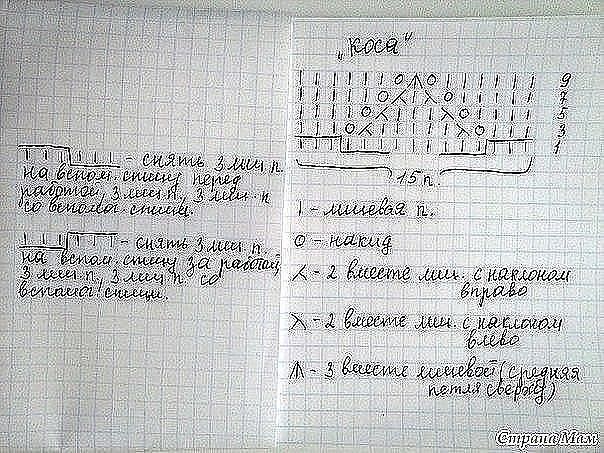 – снять 3 лиц п.
на вспом. спицу перед
работой, 3 лиц п, 3 лиц. п
со вспомог. спицы.
– снять 3 лиц п
на вспом. спицу за работой,
3 лиц п, 3 лиц п. со
вспомог. спицы.
„коса“
9
7
5
3
1
15 п.
| – лицевая п.
O – накид
⋌ – 2 вместе лиц. с наклоном
вправо
⋋ – 2 вместе лиц. с наклоном
влево
⩚ – 3 вместе лицевой (средняя
петля сверху)
Страна Мам